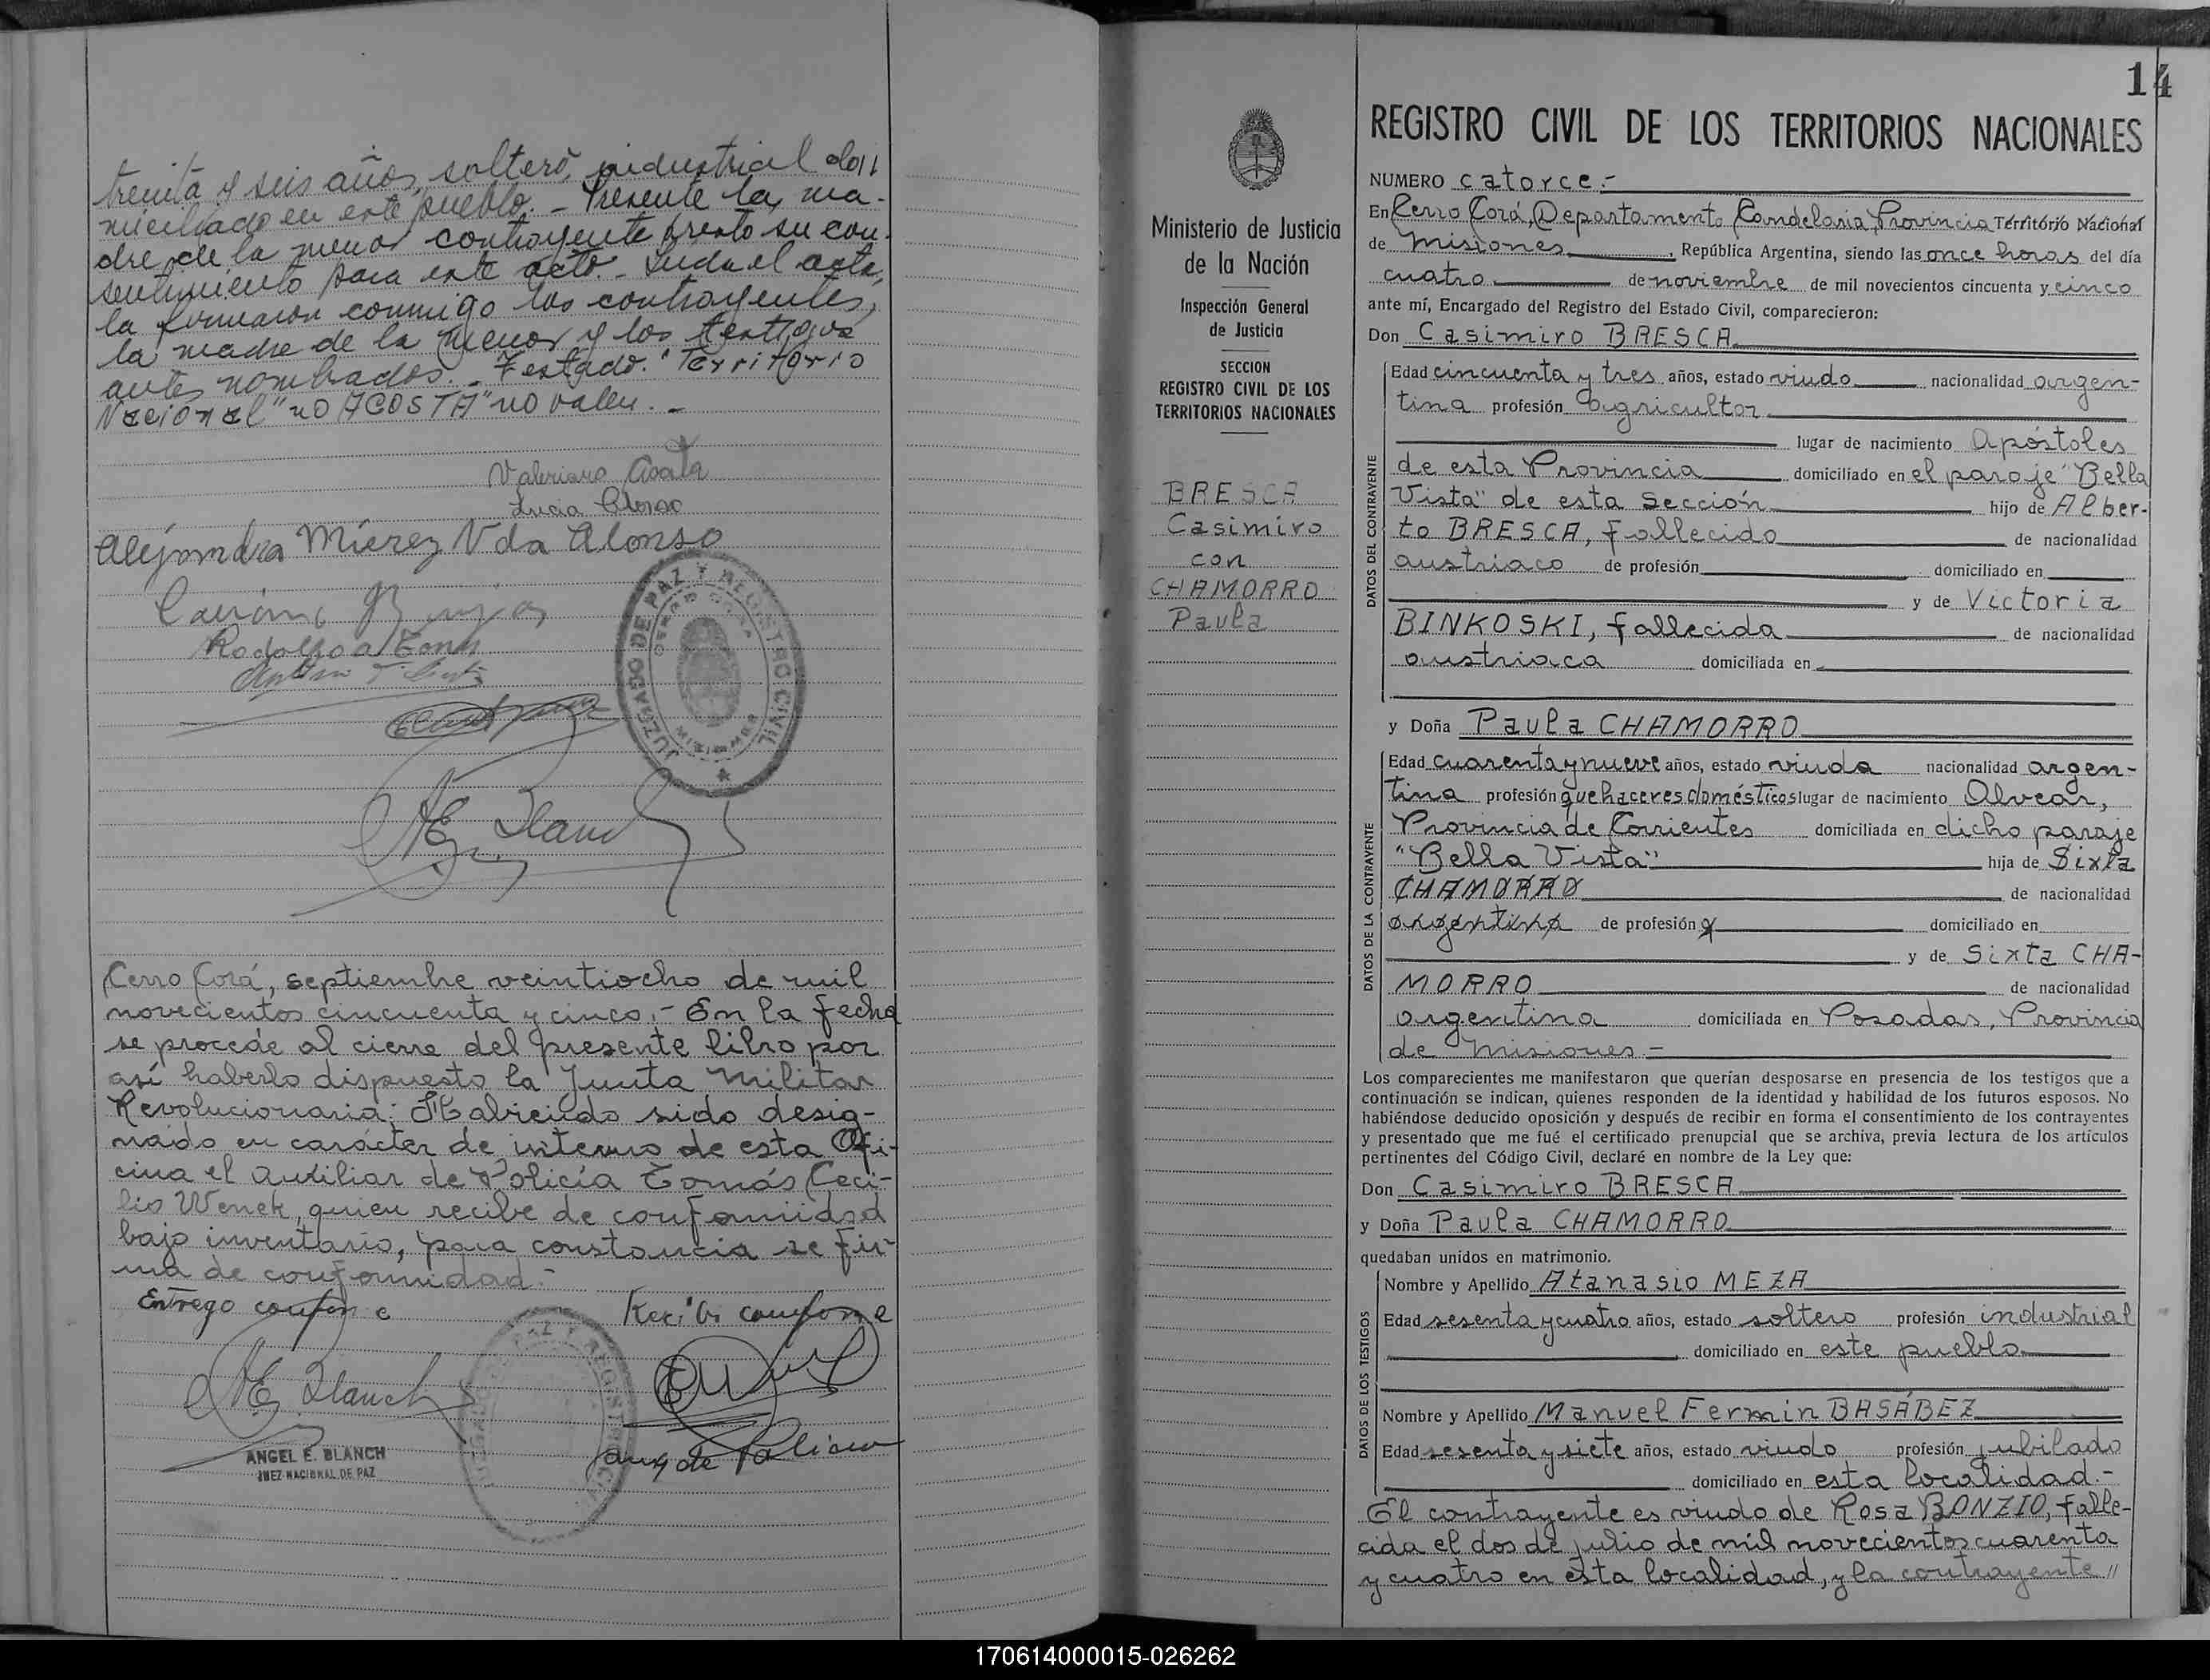 treinta y seis años, soltero, industrial do11
miciliado en este pueblo. - Presente la ma-
dre de la menor contrayente presto su con-
sentimiento para este acto. - Leida el acta,
la firmaron conmigo los contrayentes,
la madre de la menor y los testigos
antes nombrados. - Testado: "Territorio
Nacional" "no ACOSTA" no valen. -
Valeriano Acosta
Lucia Alonso
Alejandra Mierez Vda Alonso
Rodolfo a
JUZGADO DE PAZ Y REGISTRO CIVIL
CERRO CORA
MISIONES
AE Blanch
Cerro Corá, septiembre veintiocho de mil
novecientos cincuenta y cinco.- En la fecha
se procede al cierre del presente libro por
así haberlo dispuesto la Junta Militar
Revolucionaria. Habiendo sido desig-
nado en carácter de interno de esta Ofi-
cina el Auxiliar de Policía Tomás Ceci-
lio Wenek, quien recibe de conformidad
bajo inventario, para constancia se fir-
ma de conformidad.-
Entrego conforme
Recibi conforme
AE Blanch
ANGEL E. BLANCH
JUEZ NACIONAL DE PAZ
Aux de Policia
14
Ministerio de Justicia
de la Nación
Inspección General
de Justicia
SECCION
REGISTRO CIVIL DE LOS
TERRITORIOS NACIONALES
BRESCA
Casimiro
con
CHAMORRO
Paula
REGISTRO CIVIL DE LOS TERRITORIOS NACIONALES
NUMERO catorce.-
En Cerro Corá, Departamento Candelaria, Provincia Territorio Nacional
de Misiones, República Argentina, siendo las once horas del día
cuatro de noviembre de mil novecientos cincuenta y cinco
ante mí, Encargado del Registro del Estado Civil, comparecieron:
Don Casimiro BRESCA
DATOS DEL CONTRAYENTE
Edad cincuenta y tres años, estado viudo nacionalidad argen-
tina profesión agricultor
lugar de nacimiento Apóstoles
de esta Provincia domiciliado en el paraje "Bella
Vista" de esta Sección hijo de Alber-
to BRESCA, fallecido de nacionalidad
austriaco de profesión domiciliado en
y de Victoria
BINKOSKI, fallecida de nacionalidad
austriaca domiciliada en
y Doña Paula CHAMORRO
DATOS DE LA CONTRAYENTE
Edad cuarenta y nueve años, estado viuda nacionalidad argen-
tina profesión quehaceres domésticos lugar de nacimiento Alvear,
Provincia de Corrientes domiciliada en dicho paraje
"Bella Vista" hija de Sixta
CHAMORRO de nacionalidad
argentina de profesión domiciliado en
y de Sixta CHA-
MORRO de nacionalidad
argentina domiciliada en Posadas, Provincia
de Misiones.-
Los comparecientes me manifestaron que querían desposarse en presencia de los testigos que a
continuación se indican, quienes responden de la identidad y habilidad de los futuros esposos. No
habiéndose deducido oposición y después de recibir en forma el consentimiento de los contrayentes
y presentado que me fué el certificado prenupcial que se archiva, previa lectura de los artículos
pertinentes del Código Civil, declaré en nombre de la Ley que:
Don Casimiro BRESCA
y Doña Paula CHAMORRO
quedaban unidos en matrimonio.
DATOS DE LOS TESTIGOS
Nombre y Apellido Atanasio MEZA
Edad sesenta y cuatro años, estado soltero profesión industrial
domiciliado en este pueblo
Nombre y Apellido Manuel Fermin BASÁBEZ
Edad sesenta y siete años, estado viudo profesión jubilado
domiciliado en esta localidad.-
El contrayente es viudo de Rosa BONZIO, falle-
cida el dos de julio de mil novecientos cuarenta
y cuatro en esta localidad, y la contrayente"
170614000015-026262